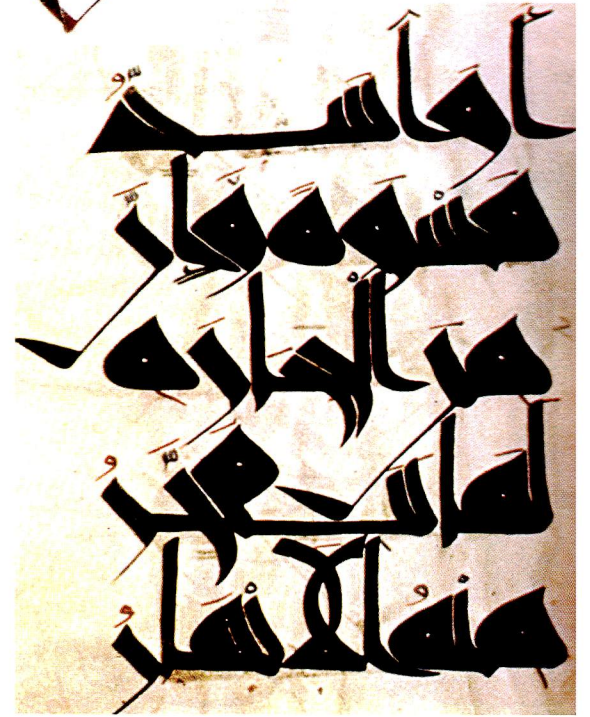 أَوْ أَشَدُّ
قَسْوَةً وَإِنَّ
مِنَ الْحِجَارَةِ
لَمَا يَتَفَجَّرُ
مِنْهُ الْأَنْهَارُ